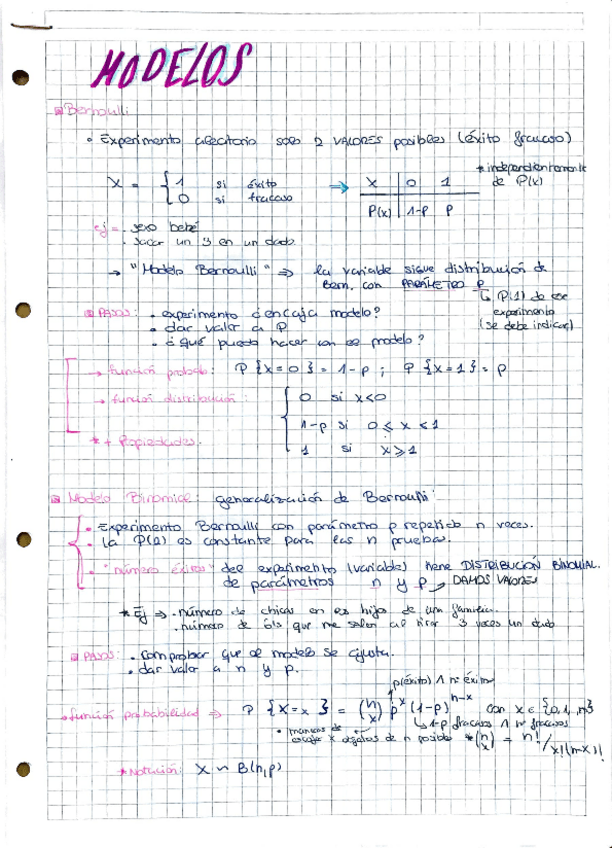 MODELOS
Bernoulli
• Experimento aleatorio solo 2 VALORES posibles (éxito fracaso)
* independientemente de P(x)
X = { 1 si éxito
0 si fracaso
→ X | 0 | 1
P(x) | 1-p | p
ej = . sexo bebé
. sacar un 3 en un dado
→ "Modelo Bernoulli" ⇒ la variable sigue distribución de
Bern. con PARÁMETRO P
↳ P(1) de ese
experimento
(se debe indicar)
PASOS: • experimento ¿encaja modelo?
• dar valor a P
• ¿Qué puedo hacer con ese modelo?
→ función probab: P {X=0} = 1-p ; P {X=1} = p
→ función distribución: { 0 si x<0
1-p si 0 ≤ x < 1
1 si x ⩾ 1
* + Propiedades.
Modelo Binomial: generalización de Bernoulli:
• Experimento Bernoulli con parámetro p repetido n veces.
• la P(1) es constante para las n pruebas.
• "número éxitos" del experimento (variable) tiene DISTRIBUCIÓN BINOMIAL.
de parámetros n y p → DAMOS VALORES
* Ej ⇒ . número de chicas en hijos de una familia.
. número de 6s que me salen al tirar 3 veces un dado
PASOS: . Comprobar que el modelo se ajusta.
. dar valor a n y p.
p(éxito) ∧ nº éxitos
• función probabilidad ⇒ P {X=x} = (n x) p^x (1-p)^n-x con x ∈ {0,1,..n}
↳ 1-p fracasos ∧ nº fracasos
• maneras de
escoger x objetos de n posible * (n x) = n! / x!(n-x)!
* Notación: X ∼ B(n,p)